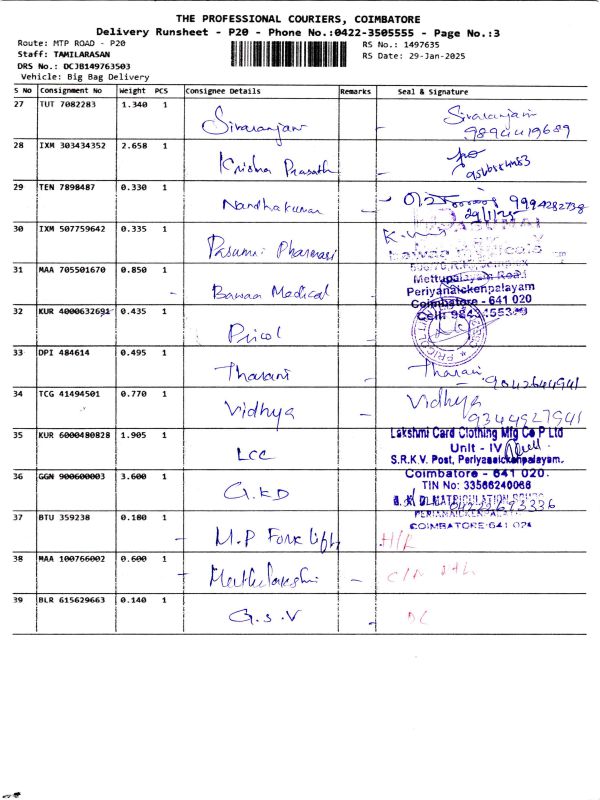 THE PROFESSIONAL COURIERS, COIMBATORE
Delivery Runsheet - P20 - Phone No.:0422-3505555 - Page No.:3
Route: MTP ROAD - P20
RS No.: 1497635
Staff: TAMILARASAN
RS Date: 29-Jan-2025
DRS No.: DCJB149763503
Vehicle: Big Bag Delivery
S No Consignment No Weight PCS Consignee Details Remarks Seal & Signature
27 TUT 7082283 1.340 1 Sivaranjani Sivaranjani
9894419689
28 IXM 303434352 2.658 1 Krisha Prasath
29 TEN 7898487 0.330 1 Nandhakumar 9994282738
29/1/25
30 IXM 507759642 0.335 1 Pasumai Pharmasi
31 MAA 705501670 0.850 1 Bawaa Medical
Mettupalayam Road
Periyanaickenpalayam
Coimbatore - 641 020
32 KUR 4000632691 0.435 1 Pricol
33 DPI 484614 0.495 1 Tharani Tharani
9042644941
34 TCG 41494501 0.770 1 Vidhya Vidhya
9344927941
35 KUR 6000480828 1.905 1 LCC
Lakshmi Card Clothing Mfg Co P Ltd
Unit - IV
S.R.K.V. Post, Periyanaickenpalayam.
Coimbatore - 641 020.
TIN No: 33566240066
36 GGN 900600003 3.600 1 G.KD
COIMBATORE-641 020
37 BTU 359238 0.180 1 M.P Fork lift H/R
38 MAA 100766002 0.600 1 Muthulakshmi
39 BLR 615629663 0.140 1 G.S.V DC